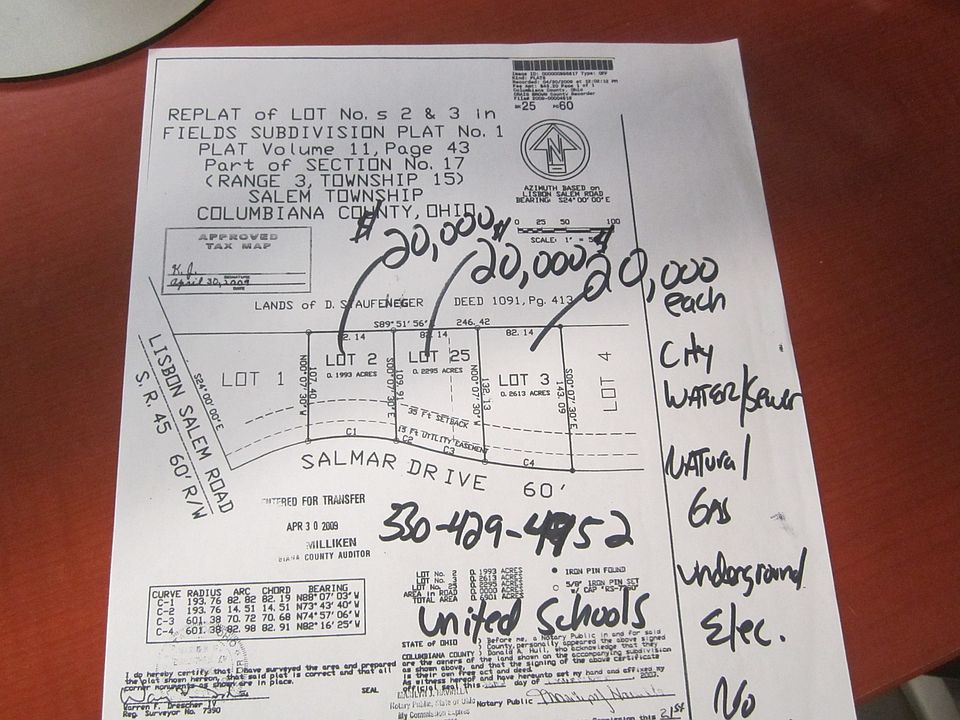 Image ID: 000000898817 Type: OFF
Kind: PLATS
Page 1 of 1
Columbiana County, Ohio
CRAIG BROWN County Recorder
BK 25 PG 60
REPLAT of LOT No. s 2 & 3 in
FIELDS SUBDIVISION PLAT No. 1
PLAT Volume 11, Page 43
Part of SECTION No. 17
(RANGE 3, TOWNSHIP 15)
SALEM TOWNSHIP
COLUMBIANA COUNTY, OHIO
N
AZIMUTH BASED on
LISBON SALEM ROAD
BEARING: S24°00'00"E
0 25 50 100
SCALE: 1' =
APPROVED
TAX MAP
K.J.
SIGNATURE
April 30, 2009
DATE
$20,000
$20,000
$20,000
each
LANDS of D. STAUFENEGER DEED 1091, Pg. 413
S89°51'56" 246.42
82.14
82.14
82.14
LOT 1
LOT 2
0.1993 ACRES
LOT 25
0.2295 ACRES
LOT 3
0.2613 ACRES
LOT 4
N00°07'30"W
107.40
S00°07'30"E
109.91
N00°07'30"W
132.13
S00°07'30"E
143.09
35 Ft SETBACK
15 Ft UTILITY EASEMENT
C1
C2
C3
C4
SALMAR DRIVE 60'
LISBON SALEM ROAD
S.R. 45 60' R/W
S24°00'00"E
City
WATER/Sewer
NATural
GAS
underground
Elec.
No
ENTERED FOR TRANSFER
APR 30 2009
MILLIKEN
COUNTY AUDITOR
330-429-4952
LOT No. 2 0.1993 ACRES
LOT No. 3 0.2613 ACRES
LOT No. 25 0.2295 ACRES
AREA in ROAD 0.0000 ACRES
TOTAL AREA 0.6901 ACRES
IRON PIN FOUND
5/8" IRON PIN SET
w/ CAP "RS-7390"
United Schools
CURVE RADIUS ARC CHORD BEARING
C-1 193.76 82.82 82.19 N88°07'03"W
C-2 193.76 14.51 14.51 N73°43'40"W
C-3 601.38 70.72 70.68 N74°57'06"W
C-4 601.38 82.98 82.91 N82°16'25"W
I do hereby certify that I have surveyed the area and prepared
the plat shown hereon, that said plat is correct and that all
corner monuments as shown are in place.
Warren F. Drescher IV
Reg. Surveyor No. 7390
SEAL
STATE of OHIO ) Before me, a Notary Public in and for said
County, personally appeared the above signed
COLUMBIANA COUNTY ) Donald A. Hull, who acknowledge that they
are the owners of the land shown on the accompanying subdivision
as shown above, and that the signing of the above certificate
is their own free act and deed.
In witness hereof and have hereunto set my hand and affixed my
official seal this day of
Notary Public
Notary Public, State of Ohio
My Commission Expires
Commission this 21st